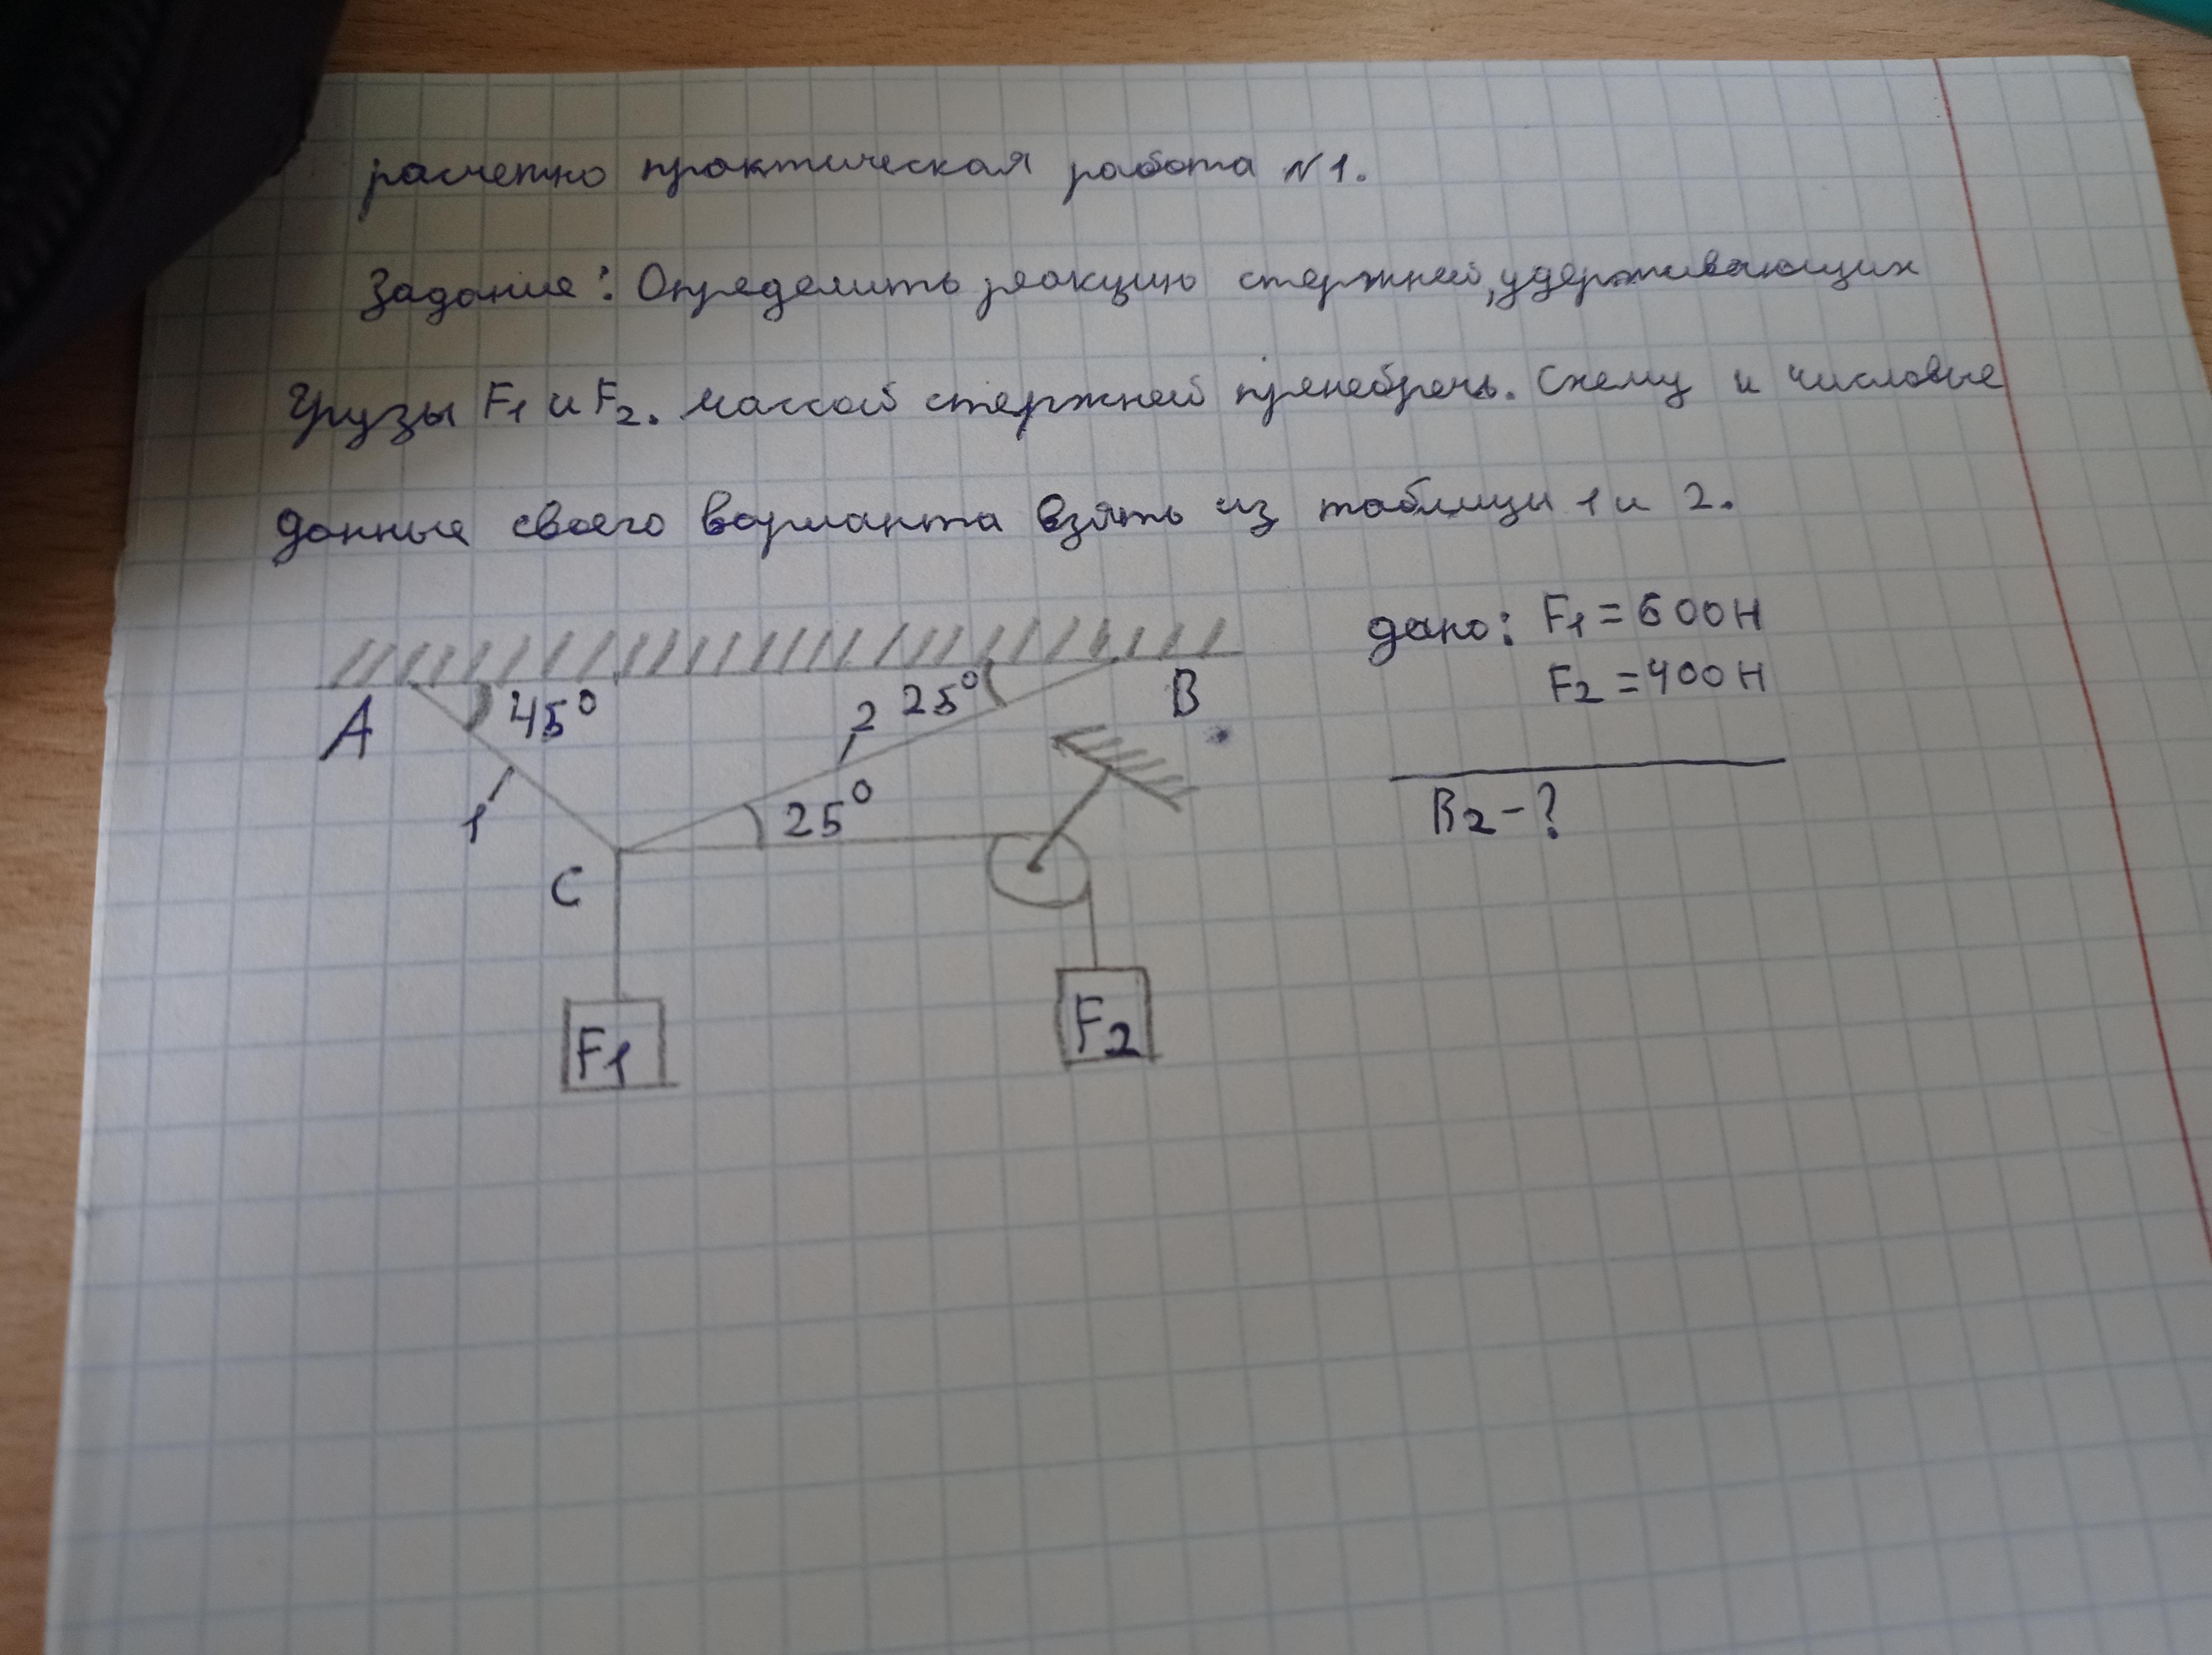 расчетно практическая работа N1.
Задание: Определить реакцию стержней, удерживающих
Грузы F1 и F2. массой стержней пренебречь. Схему и числовые
данные своего варианта взять из таблицы 1 и 2.
дано: F1 = 600 Н
F2 = 400 Н
R2 - ?
A 45° 2 25° B
1 25°
C
F1 F2